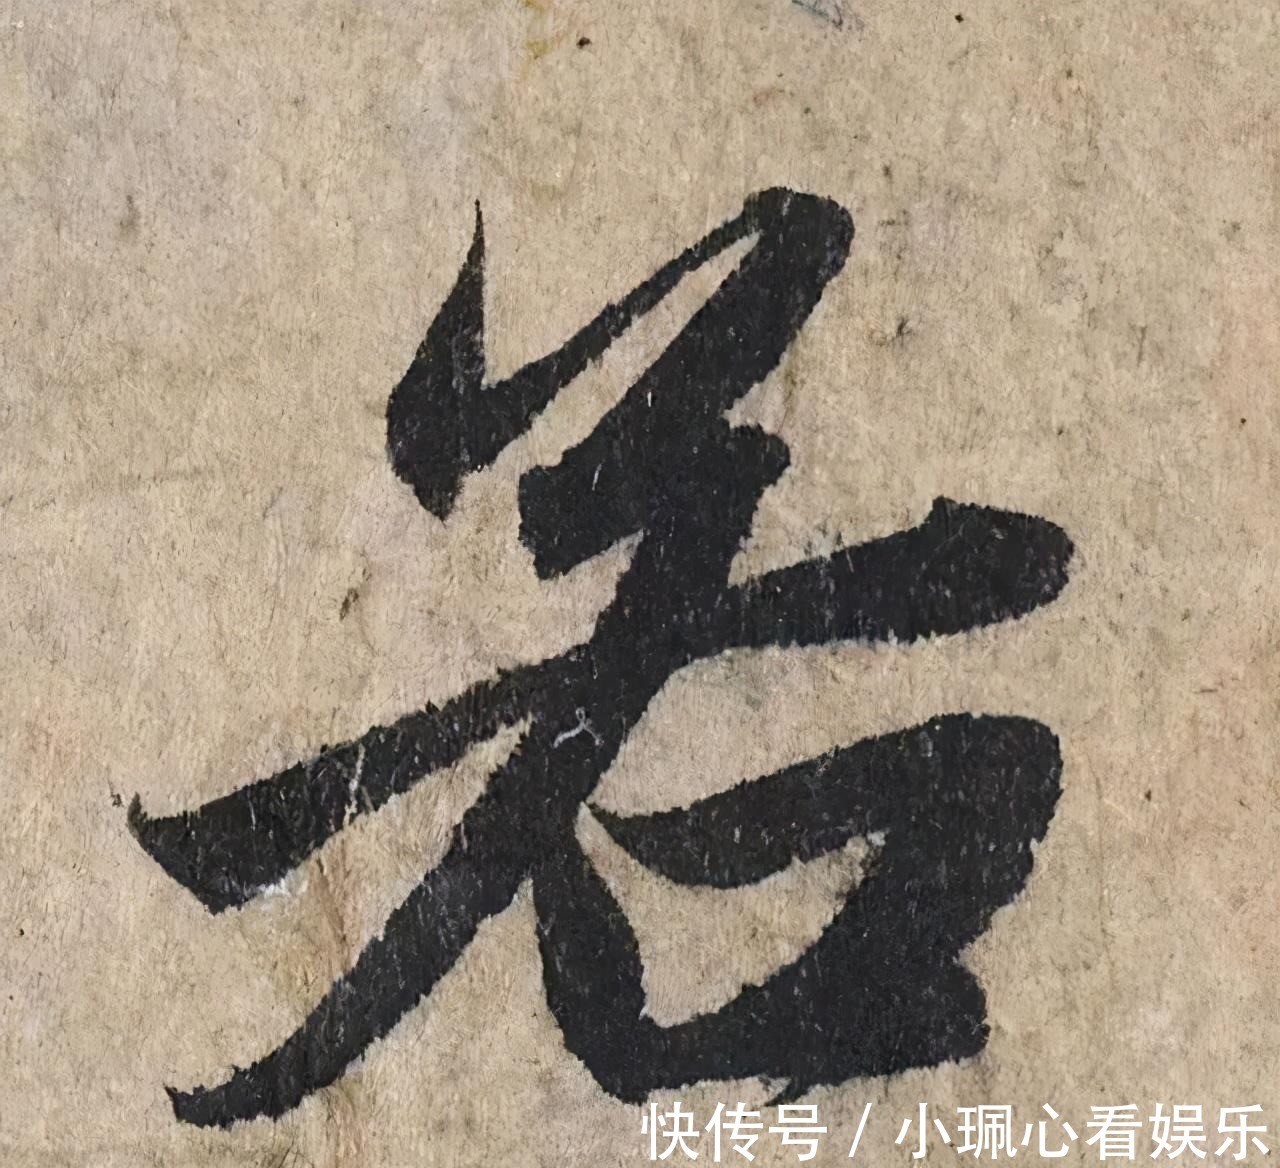 若
快传号 / 小珮心看娱乐